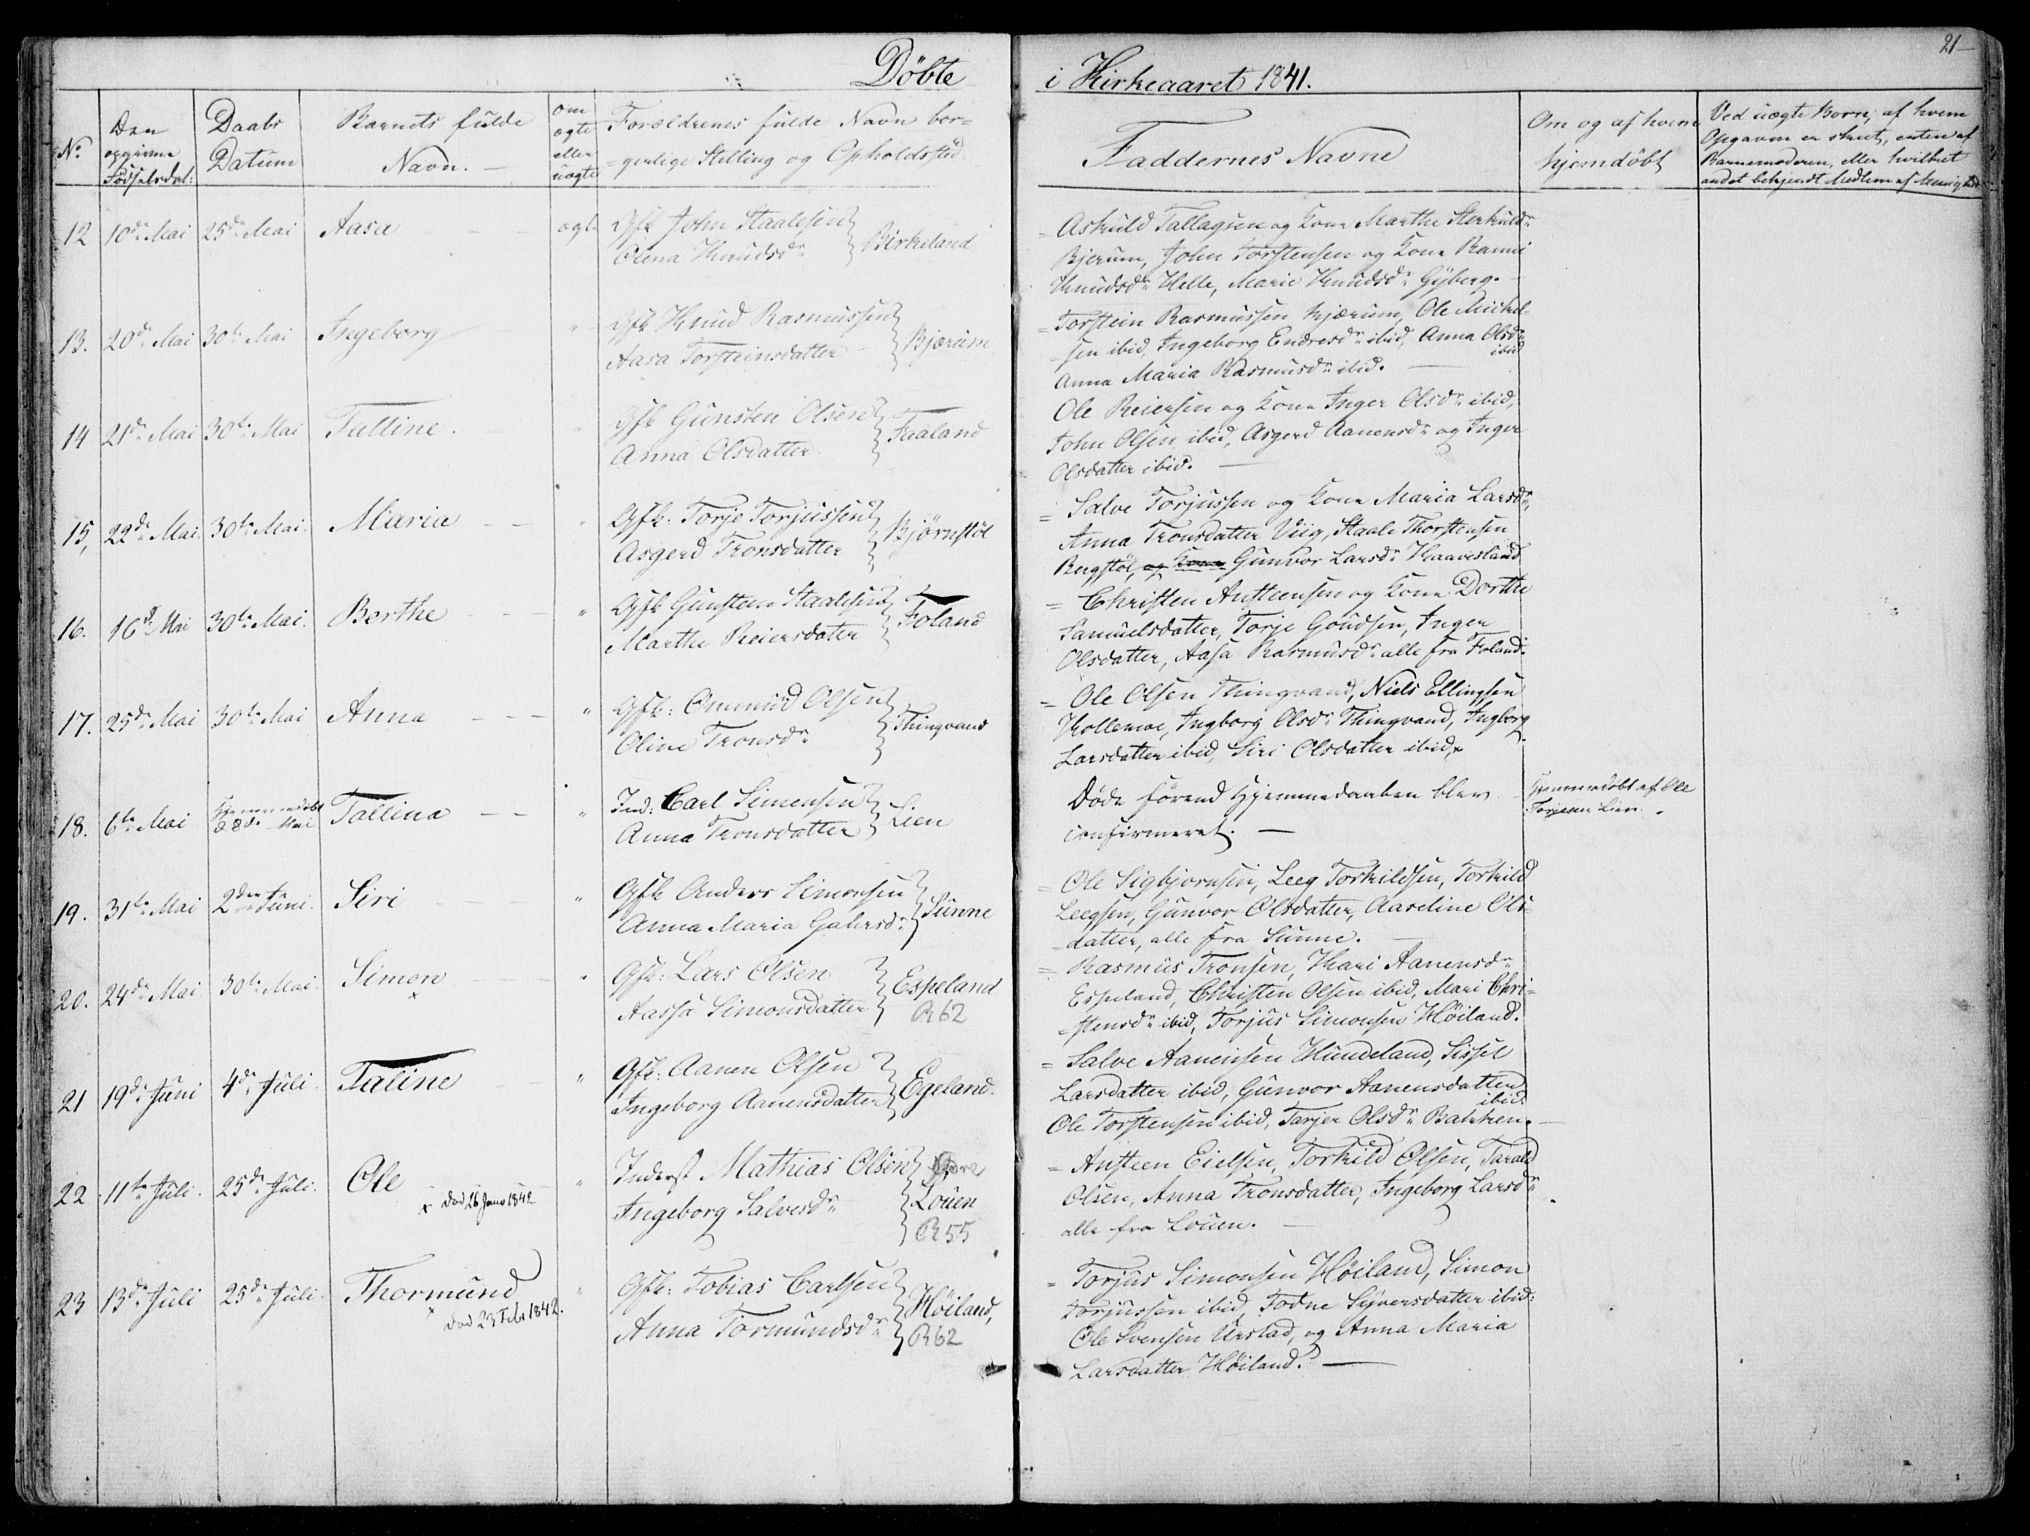 Døbte
i Kirkeaaret 1841.
21
No
Den opgivne Fødselsdat:
Daabs Datum
Barnets fulde Navn.
om ægte eller uægte
Forældrenes fulde Navn bor=
=gerlige Stilling og Opholdsted
Faddernes Navne
Om og af hvem hjemdøbt
Ved uægte Børn; af hvem
Opgaven er skeet, enten af
Barnemoderen, eller hvilket
andet bekjendt Medlem af Menighed
12 10de Mai 25de Mai Aasa ægte Gfk John Staalesen
Olena Knudsdr Birkeland
= Askuld Tallagsen og Kone Marthe Sterkuldr
Bjerum, John Torstensen og Kone Ranni
Knudsdr Helle, Marie Knudsdr Gÿberg.
13. 20de Mai 30te Mai Ingeborg " Gfk Knud Rasmussen
Aasa Torsteinsdatter Bjærum
= Torstein Rasmussen Bjærum, Ole Michel=
=sen ibid, Ingeborg Endresdr ibid, Anna Olsdr
ibid
Anna Maria Rasmusdr ibid.
14 21de Mai 30te Mai Talline. " Gfk Gunsten Olsen
Anna Olsdatter Faaland
Ole Reiersen og Kone Inger Olsdr ibid,
John Olsen ibid, Asgerd Aanensdr og Inger
Olsdatter ibid.
15, 22de Mai 30te Mai. Maria " Gfk: Torje Torjussen
Asgerd Tronsdatter Bjørnstøl
= Salve Torjussen og Kone Maria Larsdr,
Anna Tronsdatter Viig, Staale Thorstensen
Bergstøl, og Kone Gunvor Larsdr Haavesland
16. 16de Mai 30te Mai. Berthe " Gfk Gunsten Staalesen
Marthe Reiersdatter Foland
= Christen Ansteensen og Kone Dorthe
Samuelsdatter, Torje Goudsen, Inger
Olsdatter, Aasa Rasmusdr alle fra Foland.
17. 25de Mai 30te Mai Anna " Gfk: Ommund Olsen
Oline Tronsdr Thingvand
= Ole Olsen Thingvand, Niels Ellingsen
Kollemoe, Ingborg Olsdr Thingvand, Ingborg
Larsdatter ibid, Siri Olsdatter ibid,
18. 6te Mai Hjemmedøbt 28de Mai Tallina " Ind: Carl Simensen
Anna Tronsdatter Lien
Døde førend Hjemmedaaben blev
confirmeret.
Hjemmedøbt af Ole
Torjesen Lien.
19. 31te Mai 2den Juni. Siri " Gfk Anders Simonsen
Anna Maria Gabrsdr Sunne
= Ole Sigbjørnsen, Leeg Torkildsen, Torkild
Leegsen, Gunvor Olsdatter, Aaseline Ols=
=datter, alle fra Sunne.
20. 24de Mai 30te Mai. Simon " Gfk: Lars Olsen
x
Aassa Simonsdatter Espeland
R62
= Rasmus Tronsen, Kari Aanensdr
Espeland, Christen Olsen ibid, Mari Chri=
=stensdr ibid, Torjus Simonsen Høiland.
21 19de Juni 4de Juli Taline " Gfk: Aanen Olsen
Ingeborg Aanensdatter Egeland.
= Salve Aanensen Hundeland, Sissel
Larsdatter ibid, Gunvor Aanensdatter
ibid
Ole Torstensen ibid, Tarjer Olsdr Bakken.
22 11te Juli. 25de Juli. Ole " Inderst Mathias Olsen
x død 26 Janv 1842
Ingeborg Salvesdr Louen
R55
= Ansteen Eielsen, Torkild Olsen, Tarald
Olsen, Anna Tronsdatter, Ingeborg Larsdr
alle fra Louen.
23 13de Juli 25de Juli. Thormund " Gfk: Tobias Carlsen
x død 23 Febr 1842.
Anna Tormundsdr Høiland,
R62
= Torjus Simonsen Høiland, Simon
Torjussen ibid, Todne Syversdatter ibid:
Ole Svensen Urstad, og Anna Maria
Larsdatter Høiland.